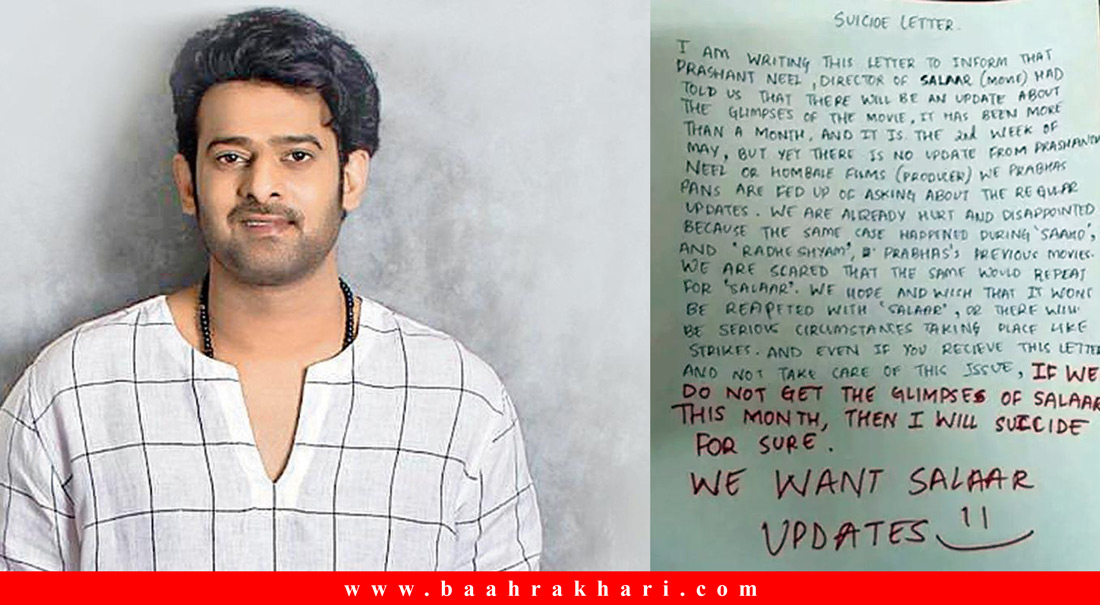 SUICIDE LETTER.
I AM WRITING THIS LETTER TO INFORM THAT
PRASHANT NEEL, DIRECTOR OF SALAAR (MOVIE) HAD
TOLD US THAT THERE WILL BE AN UPDATE ABOUT
THE GLIMPSES OF THE MOVIE, IT HAS BEEN MORE
THAN A MONTH, AND IT IS THE 2nd WEEK OF
MAY, BUT YET THERE IS NO UPDATE FROM PRASHANTH
NEEL OR HOMBALE FILMS (PRODUCER) WE PRABHAS
FANS ARE FED UP OF ASKING ABOUT THE REGULAR
UPDATES. WE ARE ALREADY HURT AND DISAPPOINTED
BECAUSE THE SAME CASE HAPPENED DURING 'SAAHO',
AND 'RADHE SHYAM', PRABHAS'S PREVIOUS MOVIES.
WE ARE SCARED THAT THE SAME WOULD REPEAT
FOR 'SALAAR'. WE HOPE AND WISH THAT IT WONT
BE REAPETED WITH 'SALAAR', OR THERE WILL
BE SERIOUS CIRCUMSTANCES TAKING PLACE LIKE
STRIKES. AND EVEN IF YOU RECIEVE THIS LETTER
AND NOT TAKE CARE OF THIS ISSUE, IF WE
DO NOT GET THE GLIMPSES OF SALAAR
THIS MONTH, THEN I WILL SUICIDE
FOR SURE.
WE WANT SALAAR
UPDATES
www.baahrakhari.com